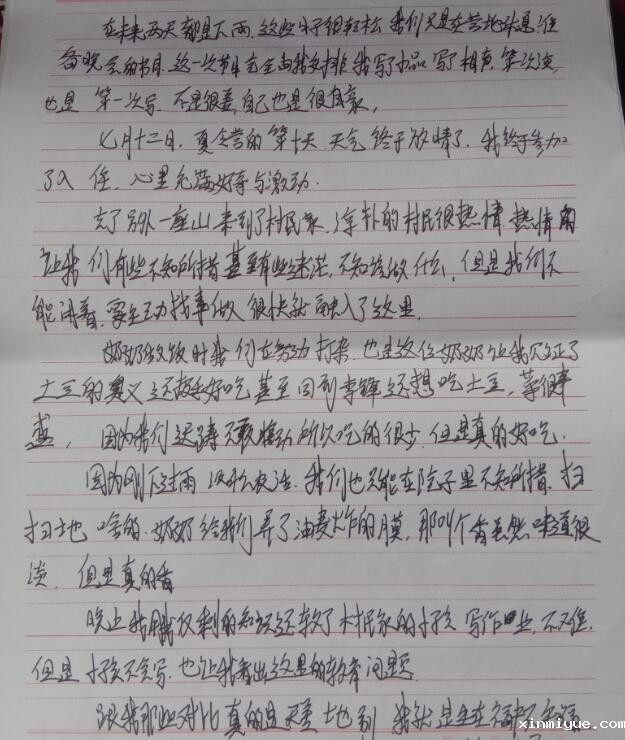 在未来两天都是下雨,这些日子很轻松,我们只是在营地休息,准
备晚会的节目,这一次节目完全由我安排,我写小品,写相声,第一次演
也是第一次写,不是很差,自己也是很自豪。
七月十二日,夏令营的第十天,天气终于放晴了,我终于参加
了入住,心里充满好奇与激动.
走了别外一座山来到了村民家,淳朴的村民很热情,热情的
让我们有些不知所措甚至有些迷茫,不知该做什么,但是我们不
能闲着,要主动找事做,很快就融入了这里.
奶奶做饭时我们在努力打杂,也是这位奶奶让我见证了
土豆的奥义,还挺好吃,甚至回到李锋还想吃土豆,菜很丰
盛,因为我们迟到不敢惊动所以吃的很少,但是真的好吃.
因为刚下过雨没办法农活,我们也只能在院子里不知所措,扫
扫地啥的,奶奶给我们弄了油煎炸的馍,那叫个香,虽然味道很
淡,但是真的香
晚上我用我仅剩的知识还教了村民家的小孩写作业,不难.
但是小孩不会写,也让我看出这里的教育问题.
跟我那些对比真的是天差地别,我就是生在福
xinmiyue.com